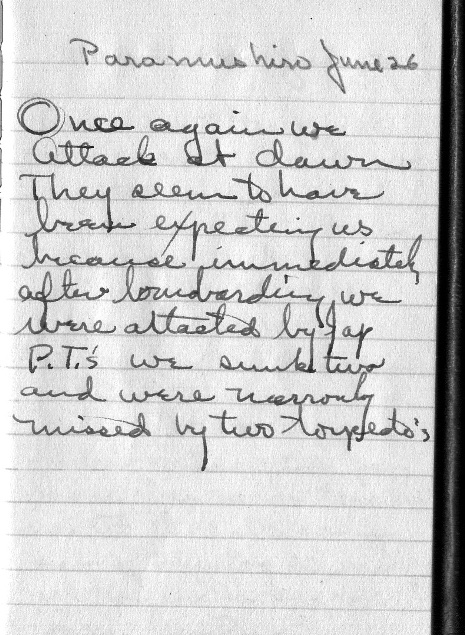 Paramushiro June 26
Once again we
attack at dawn
They seem to have
been expecting us
because immediately
after bombarding we
were attacted by Jap
P.T.'s we sunk two
and were narrowly
missed by two torpedo's